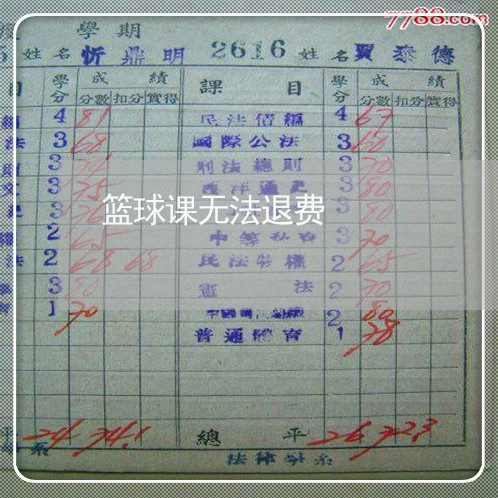 7788.com
學期
姓名 忻鼎明 2616 姓名 賈泰德
目 學分 成績 課目 學分 成績
分數 扣分 實得 分數 扣分 實得
4 81 民法債編 4 67
法 3 68 國際公法 3 60
3 刑法總則 3 70
3 75 西洋通史 3 80
3 3 80
篮球课无法退费
2 65 3 70
法 2 68 68 民法物權 2 65
3 80 憲法 2 70
1 70 2 80
普通體育 1 78
平 24 74.1 總平 26 72.3
系 法律學系